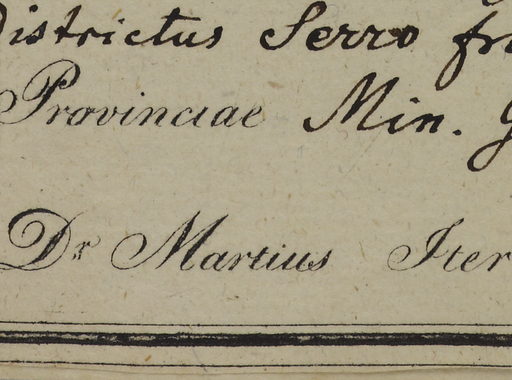 Districtus Serro fr
Provinciae Min. G
Dr Martius Iter